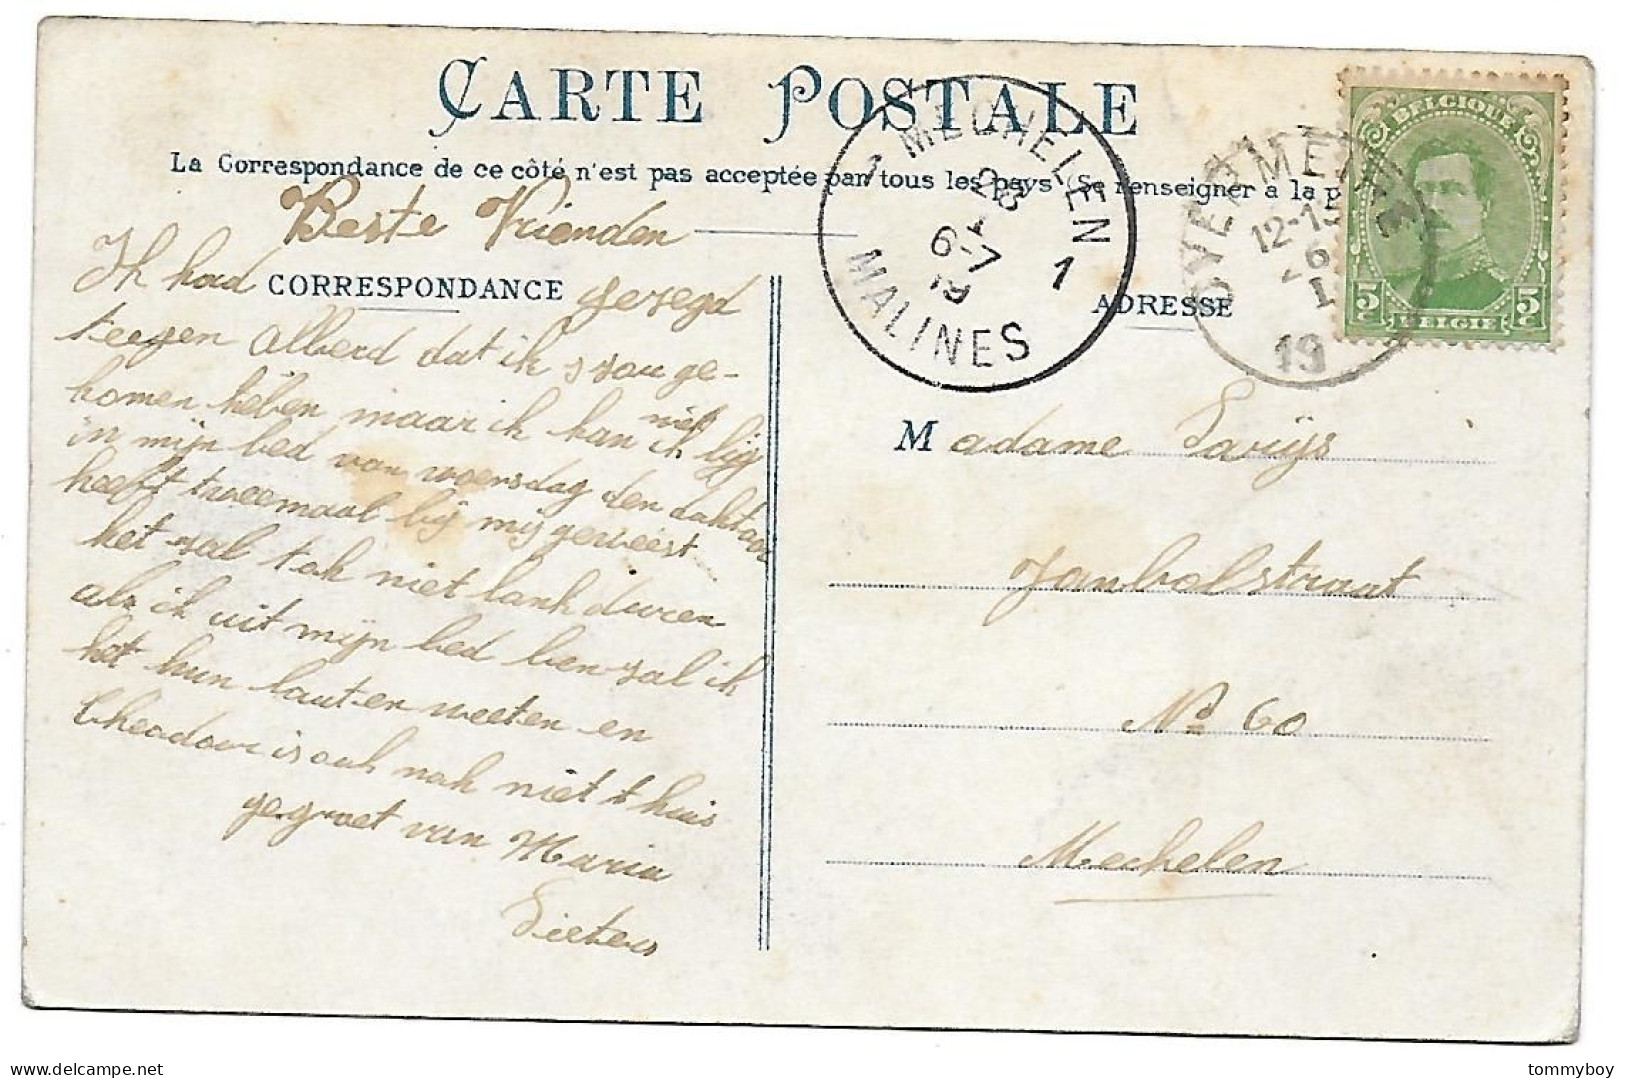 CARTE POSTALE
La Correspondance de ce côté n'est pas acceptée par tous les pays (Se renseigner à la p
Beste Vrienden
CORRESPONDANCE
ADRESSE
Ik had gezegd
teegen Alberd dat ik zou ge-
komen heben maar ik kan niet
ik lig
in mijn bed van woensdag den doktoor
heeft tweemaal bij mij geweest
het zal tok niet lank duren
als ik uit mijn bed ben zal ik
het hun laaten weeten en
theodoor is ook nok niet thuis
gegroet van Maria
Pieters
Madame
straat
No 60
Mechelen
1 MECHELEN 1
26
I
6-7
19
MALINES
12-15
I
19
BELGIQUE
5c 5c
BELGIE
delcampe.net
tommyboy